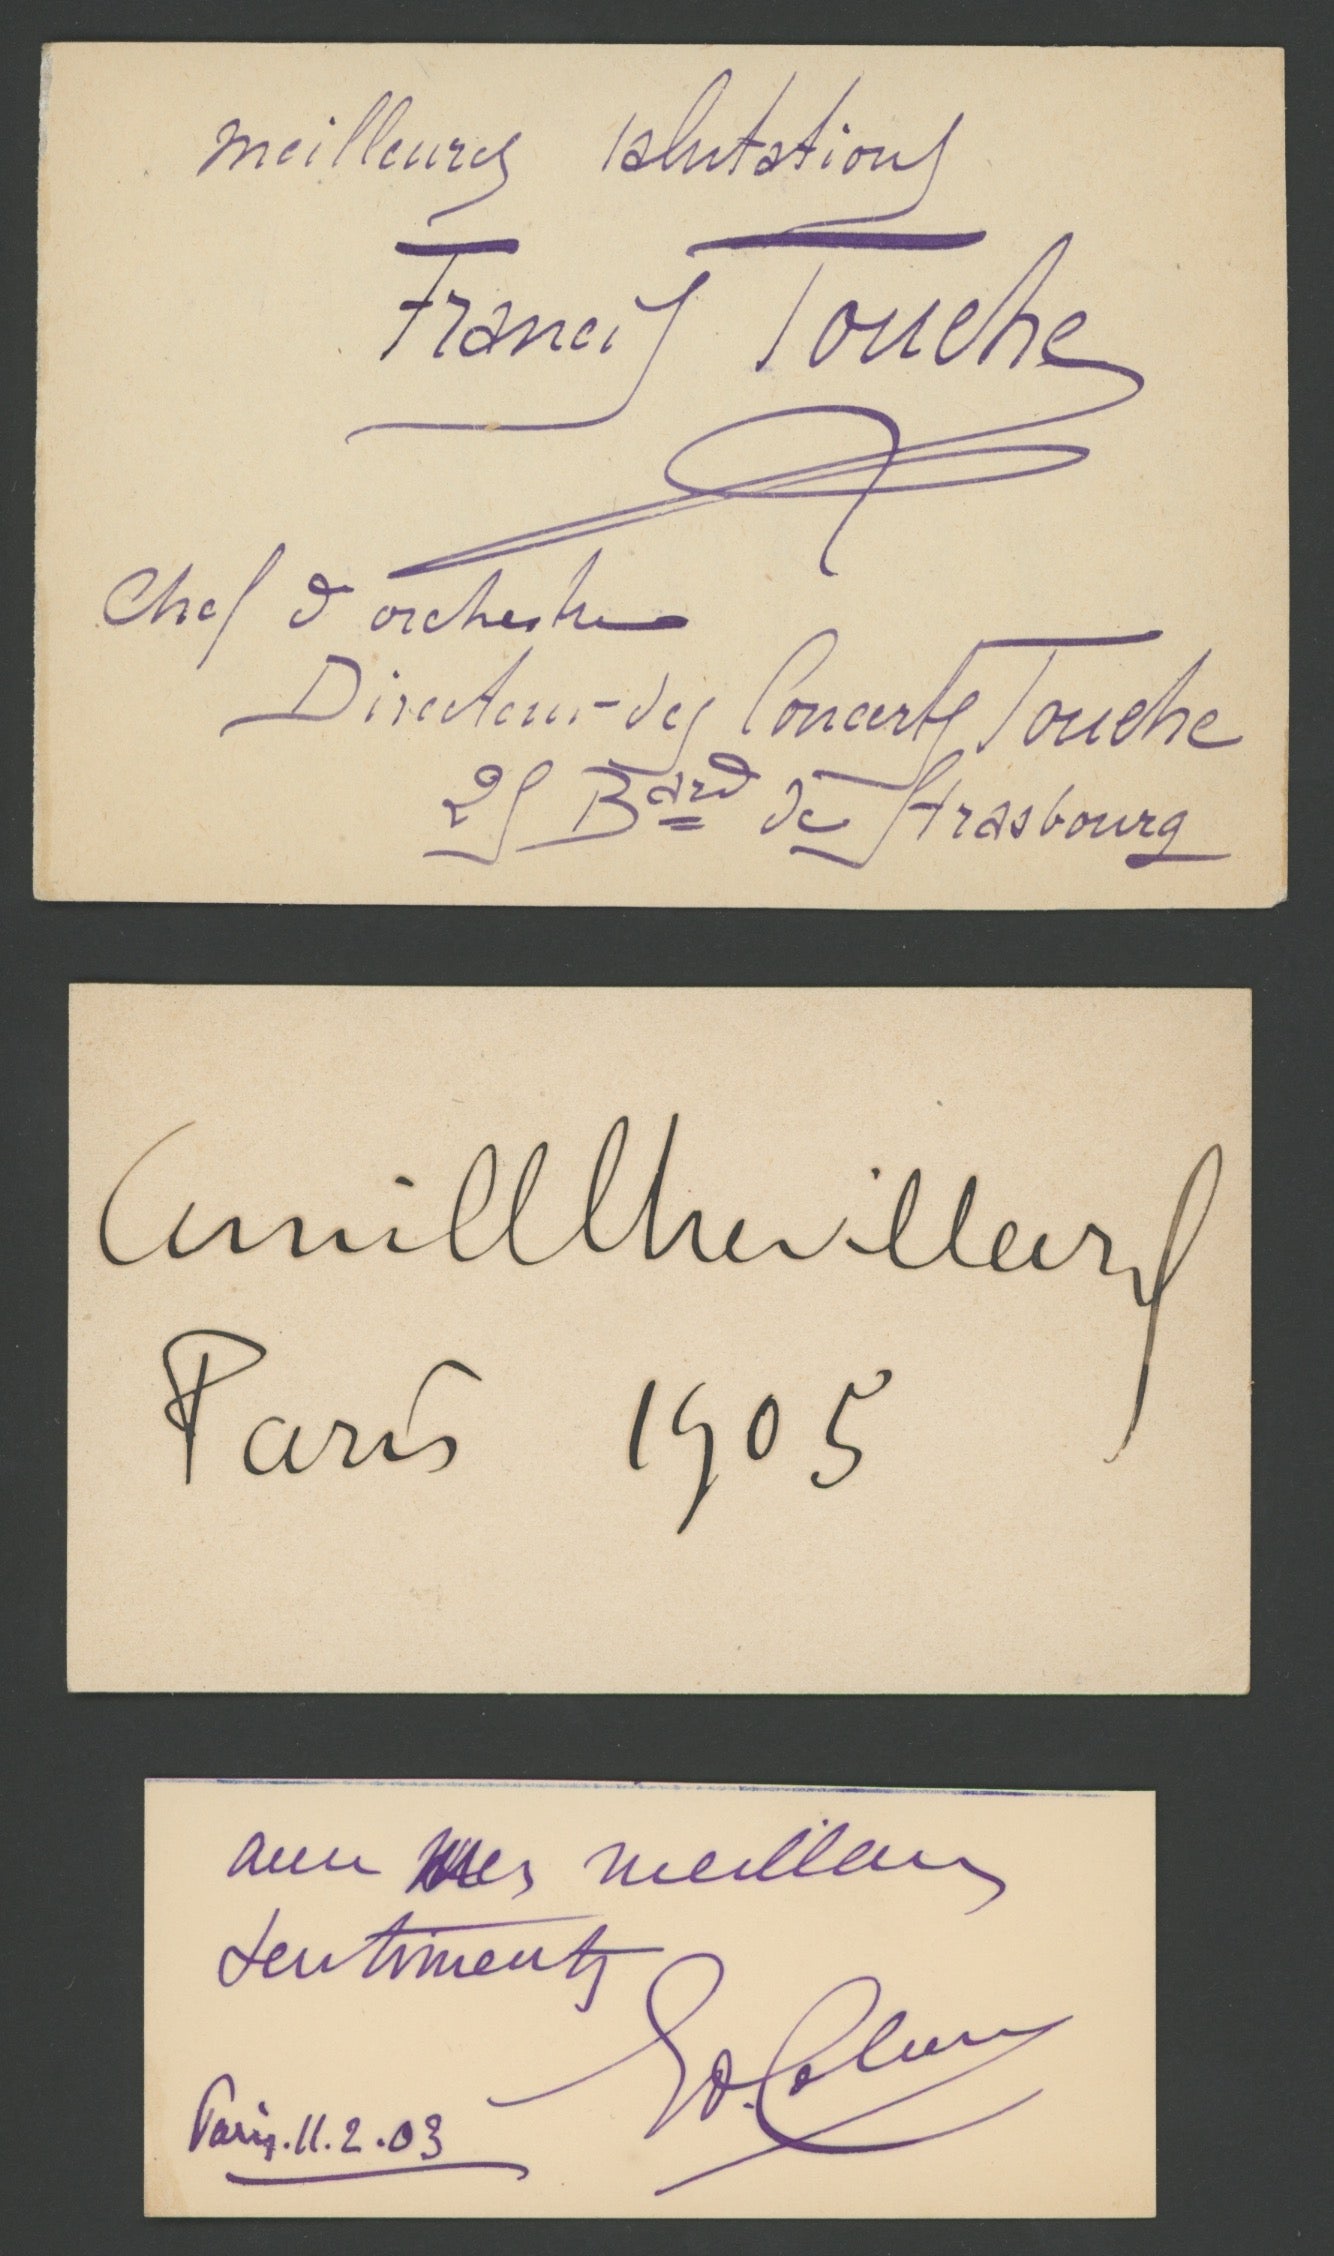 meilleures salutations
Francis Touche
Chef d'orchestre
Directeur des Concerts Touche
25 Bard de Strasbourg
Camille Chevillard
Paris 1905
avec mes meilleurs
sentiments
Ed. Colonne
Paris. 11. 2. 03